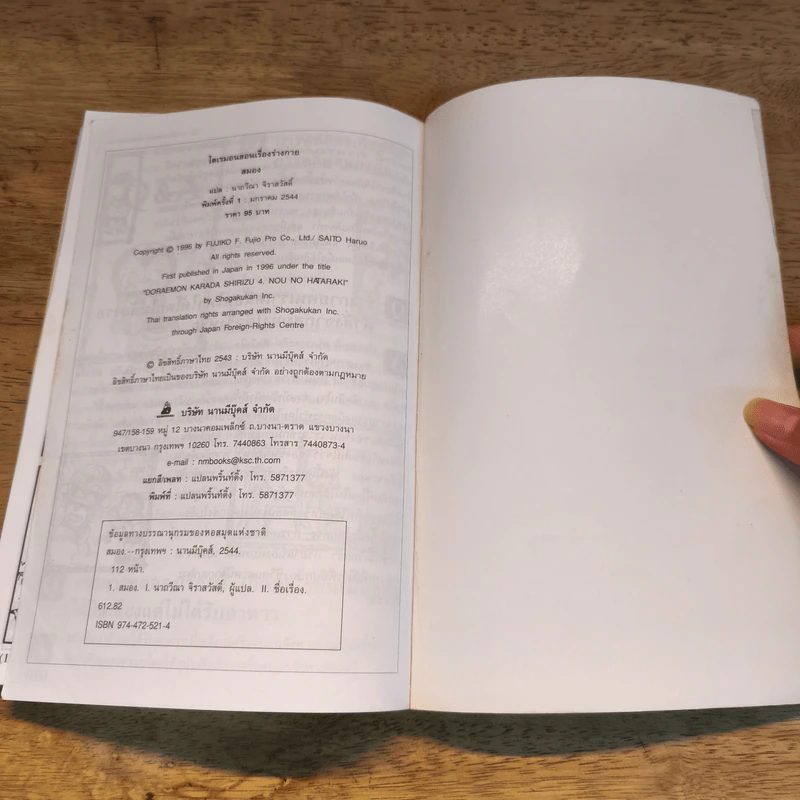 โดเรมอนสอนเรื่องร่างกาย
สมอง
แปล : นาถวีณา จิราสวัสดิ์
พิมพ์ครั้งที่ 1 : มกราคม 2544
ราคา 95 บาท
Copyright © 1996 by FUJIKO F. Fujio Pro Co., Ltd./ SAITO Haruo
All rights reserved.
First published in Japan in 1996 under the title
"DORAEMON KARADA SHIRIZU 4. NOU NO HATARAKI"
by Shogakukan Inc.
Thai translation rights arranged with Shogakukan Inc.
through Japan Foreign-Rights Centre
© ลิขสิทธิ์ภาษาไทย 2543 : บริษัท นานมีบุ๊คส์ จำกัด
ลิขสิทธิ์ภาษาไทยเป็นของบริษัท นานมีบุ๊คส์ จำกัด อย่างถูกต้องตามกฎหมาย
บริษัท นานมีบุ๊คส์ จำกัด
947/158-159 หมู่ 12 บางนาคอมเพล็กซ์ ถ.บางนา-ตราด แขวงบางนา
เขตบางนา กรุงเทพฯ 10260 โทร. 7440863 โทรสาร 7440873-4
e-mail : nmbooks@ksc.th.com
แยกสี/เพลท : แปลนพริ้นท์ติ้ง โทร. 5871377
พิมพ์ที่ : แปลนพริ้นท์ติ้ง โทร. 5871377
ข้อมูลทางบรรณานุกรมของหอสมุดแห่งชาติ
สมอง.--กรุงเทพฯ : นานมีบุ๊คส์, 2544.
112 หน้า.
1. สมอง. I. นาถวีณา จิราสวัสดิ์, ผู้แปล. II. ชื่อเรื่อง.
612.82
ISBN 974-472-521-4